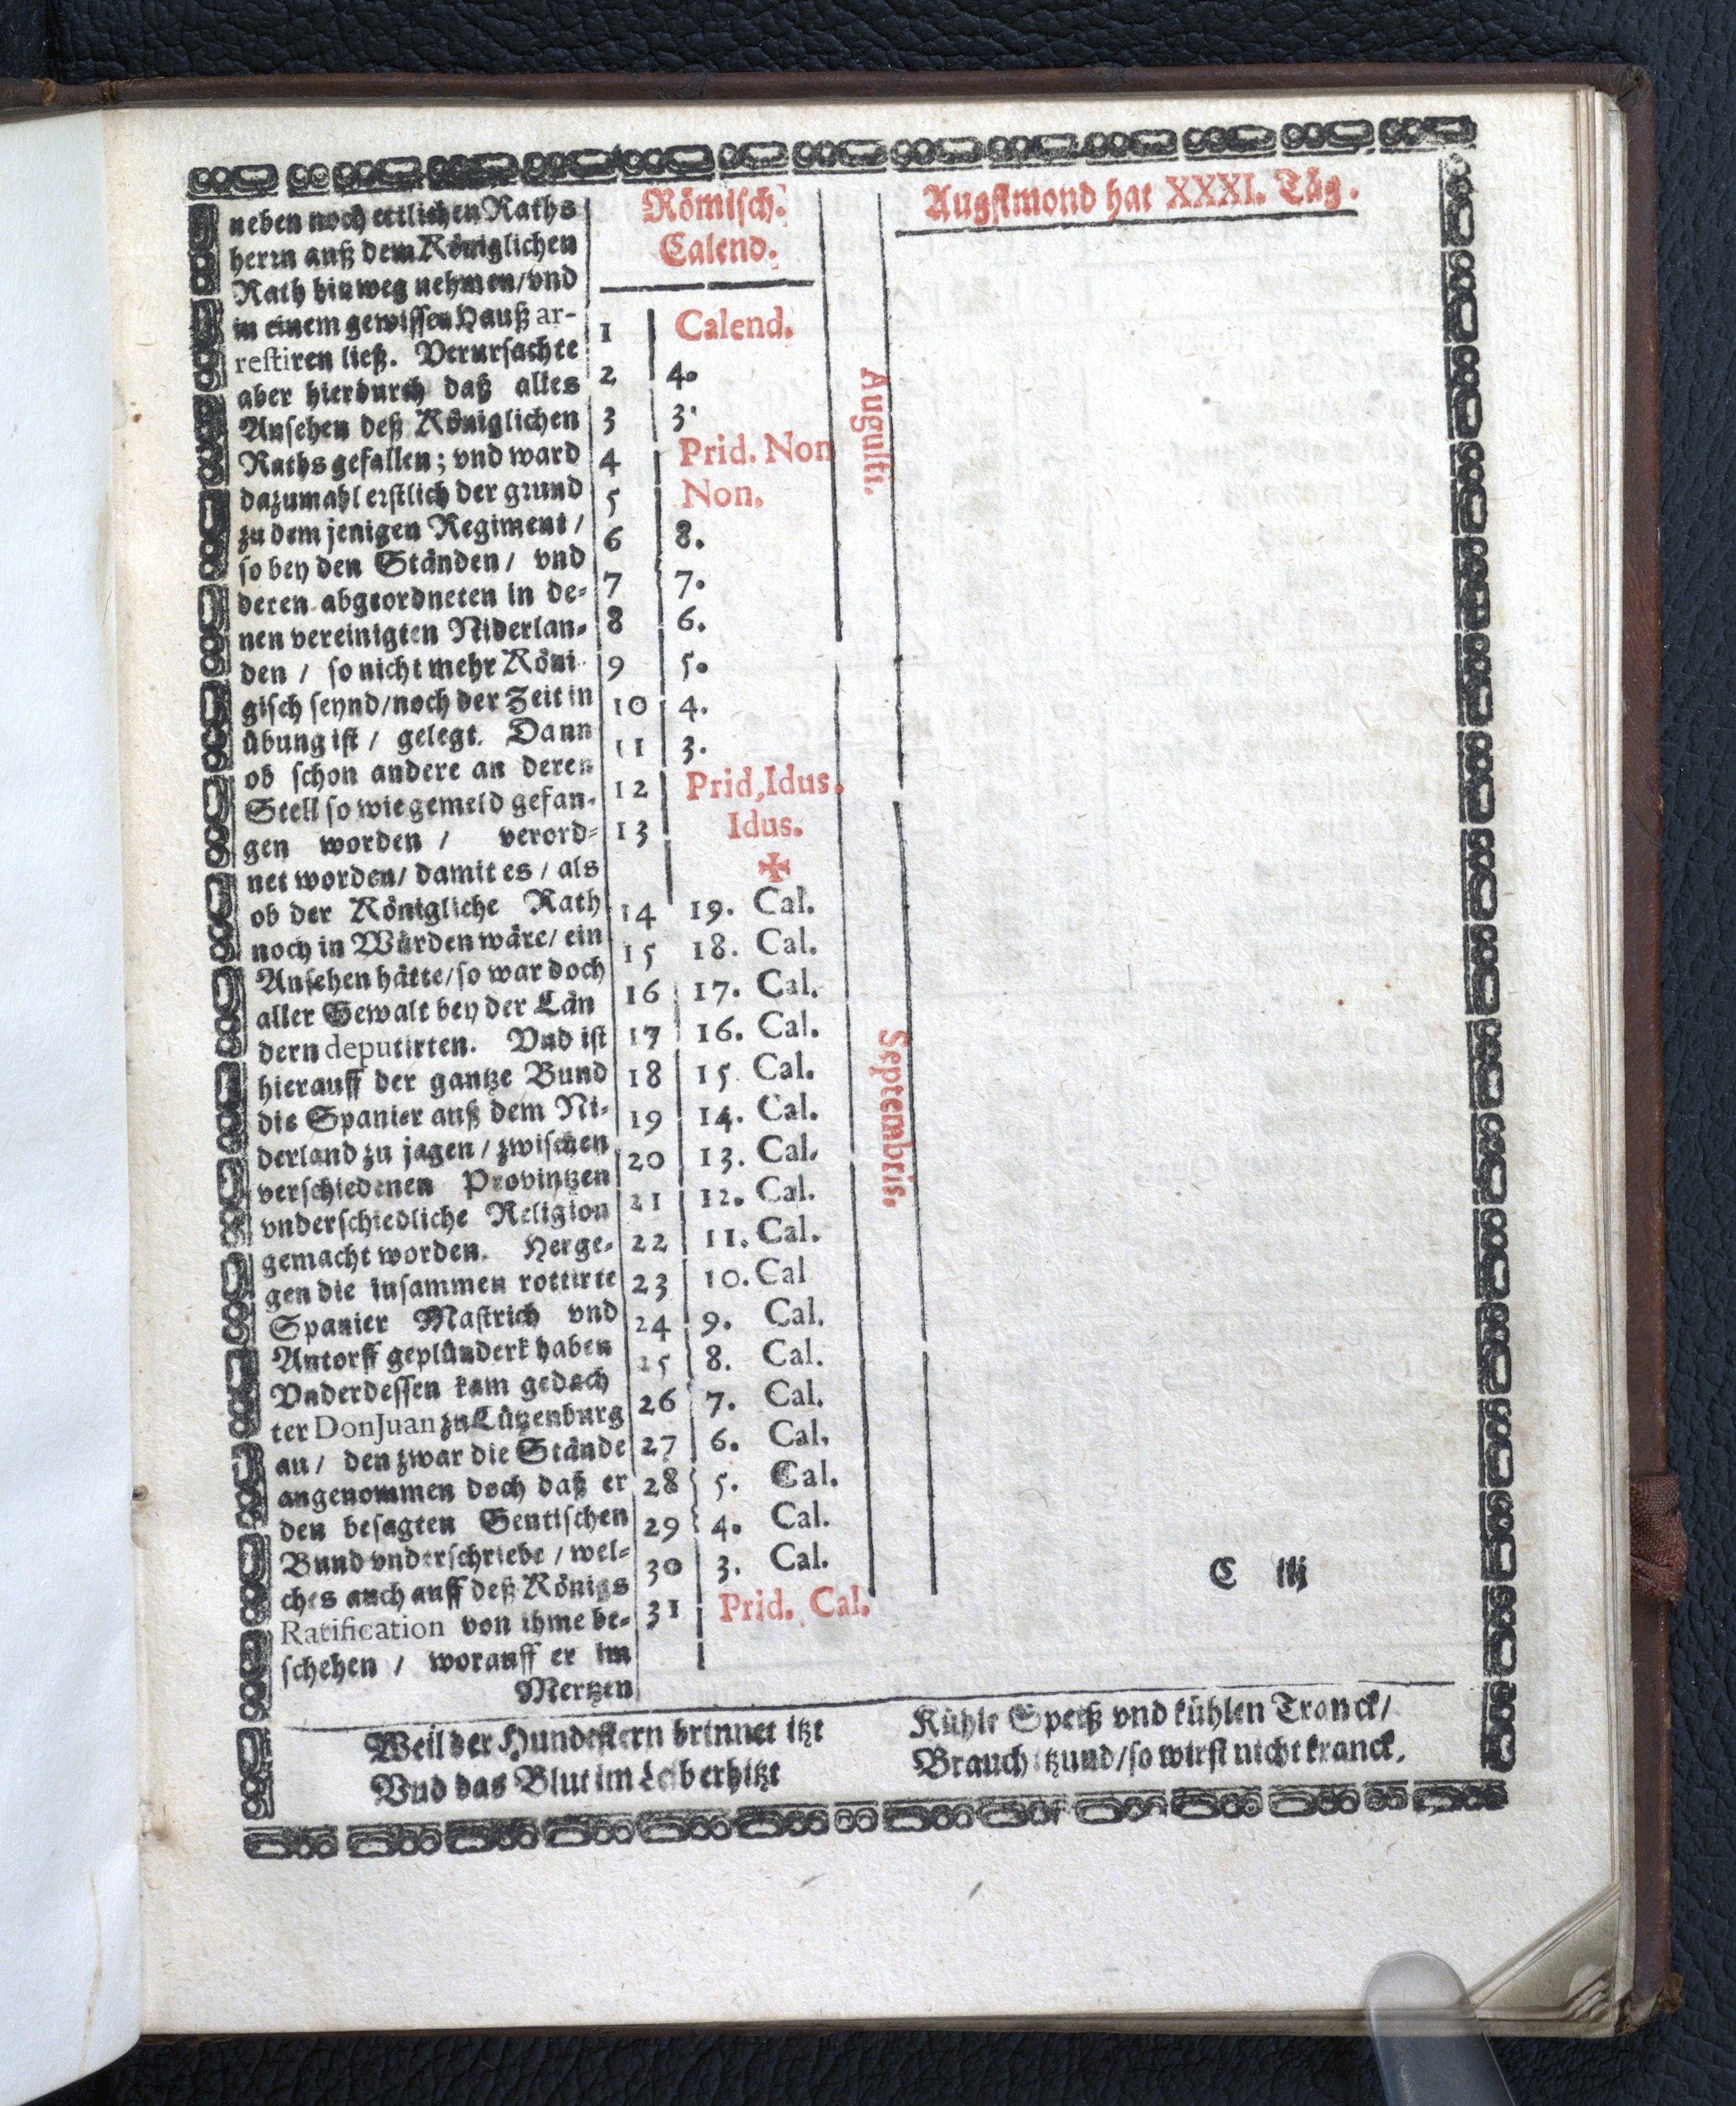 neben noch ettlichen Raths
herrn auß dem Königlichen
Rath hinweg nehmen/vnd
in einem gewissen Hauß ar-
restiren ließ. Verursachte
aber hierdurch daß alles
Ansehen deß Königlichen
Raths gefallen; vnd ward
dazumahl erstlich der grund
zu dem jenigen Regiment /
so bey den Ständen / vnd
deren abgeordneten in de-
nen vereinigten Niderlan-
den / so nicht mehr Köni-
gisch seynd/noch der Zeit in
übung ist / gelegt. Dann
ob schon andere an deren
Stell so wie gemeld gefan-
gen worden / verord-
net worden/ damit es / als
ob der Königliche Rath
noch in Würden wäre/ ein
Ansehen hätte/so war doch
aller Gewalt bey der Län
dern deputirten. Vnd ist
hierauff der gantze Bund
die Spanier auß dem Ni-
derland zu jagen / zwischen
verschiedenen Provintzen
vnderschiedliche Religion
gemacht worden. Herge-
gen die insammen rottirte
Spanier Mastrich vnd
Antorff geplündert haben
Vnderdessen kam gedach
ter Don Juan zu Lützenburg
an / den zwar die Stände
angenommen doch daß er
den besagten Gentischen
Bund vnderschriebe / wel-
ches auch auff deß Königs
Ratification von ihme be-
schehen / worauff er im
Mertzen
Römisch.
Calend.
1 Calend.
2 4.
3 3.
4 Prid. Non
5 Non.
6 8.
7 7.
8 6.
9 5.
10 4.
11 3.
12 Prid, Idus.
13 Idus.
✠
14 19. Cal.
15 18. Cal.
16 17. Cal.
17 16. Cal.
18 15 Cal.
19 14. Cal.
20 13. Cal.
21 12. Cal.
22 11. Cal.
23 10. Cal
24 9. Cal.
25 8. Cal.
26 7. Cal.
27 6. Cal.
28 5. Cal.
29 4. Cal.
30 3. Cal.
31 Prid. Cal.
Augusti.
Septembris.
Augstmond hat XXXI. Täg.
C iij
Weil der Hundsstern brinnet itzt
Vnd das Blut im Leib erhitzt
Kühle Speiß vnd kühlen Tranck/
Brauch itzund/so wirst nicht kranck.